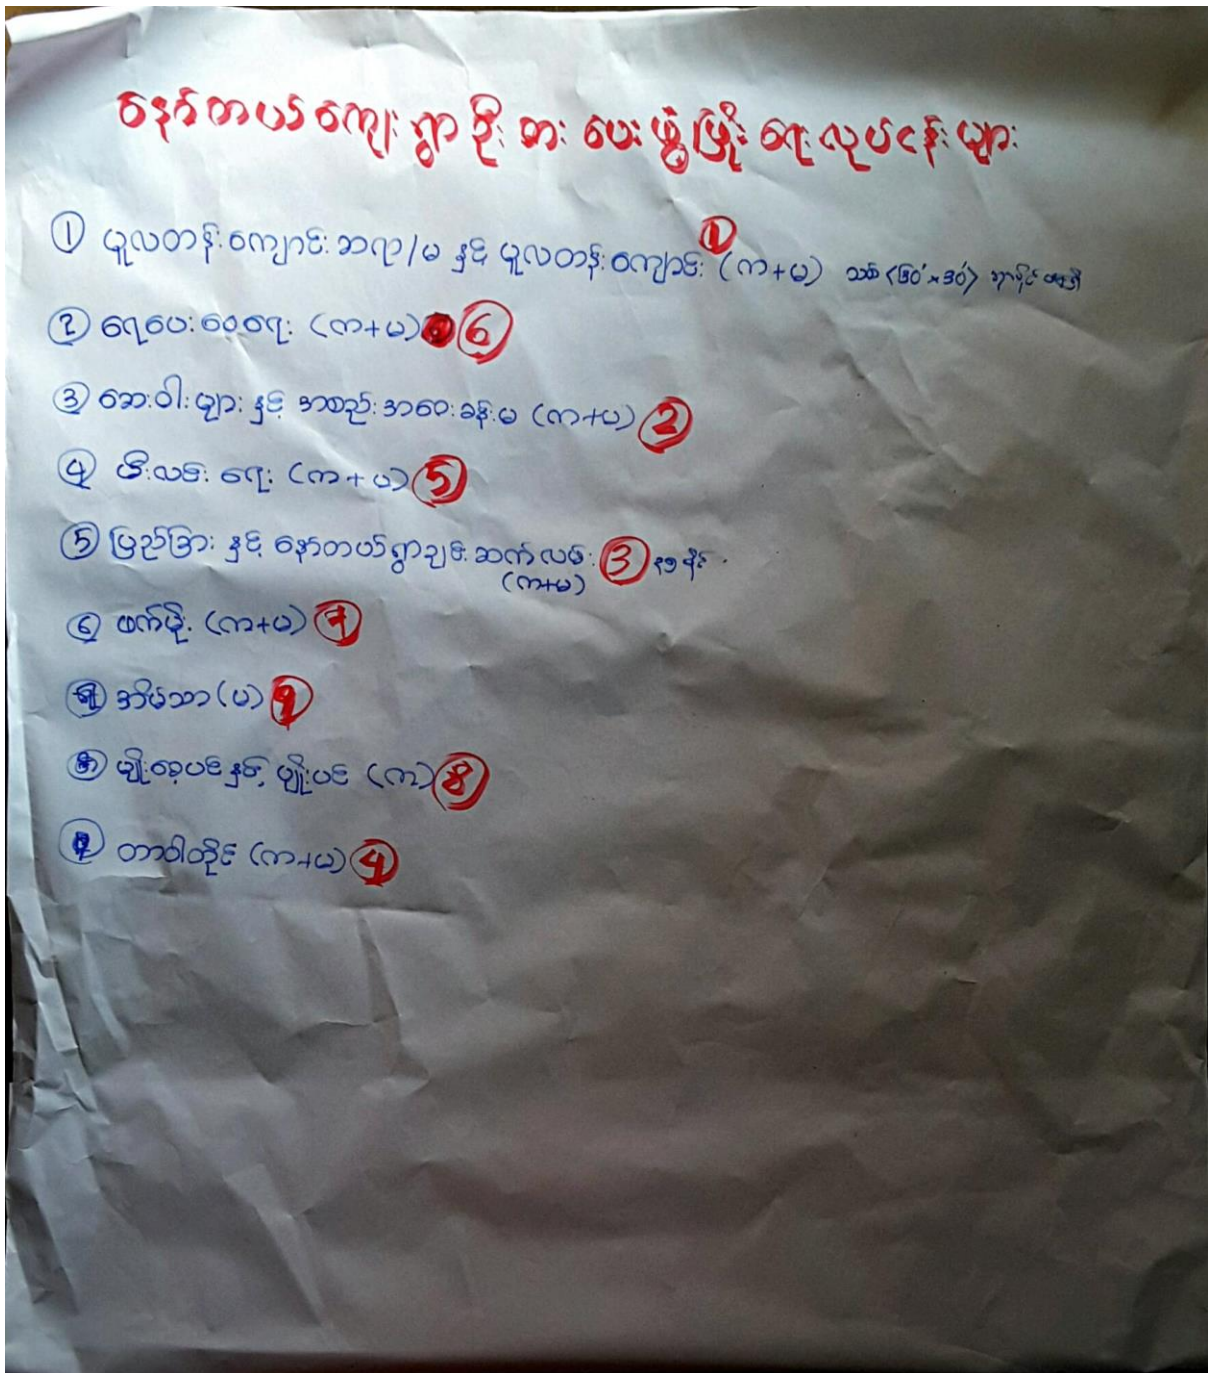 နော်တယ်ကျေးရွာဦးစားပေးဖွံ့ဖြိုးရေးလုပ်ငန်းများ
① မူလတန်းကျောင်းဆရာ/မ နှင့် မူလတန်းကျောင်း (က+မ) ① သစ် (၆၀'×၃၀')
② ရေပေးဝေရေး (က+မ) ⑥
③ ဆေးဝါးများ နှင့် အစည်းအဝေးခန်းမ (က+မ) ②
④ မီးလင်းရေး (က+မ) ⑤
⑤ ပြည်ခြား နှင့် နော်တယ်ရွာချင်းဆက်လမ်း ③ ၅ မိုင်
(က+မ)
⑥ ဖက်မိုး (က+မ) ⑦
⑦ အိမ်သာ (မ) ⑨
⑧ မျိုးစေ့ပင်နှင့် မျိုးပင် (က) ⑧
⑨ တာဝါတိုင် (က+မ) ④